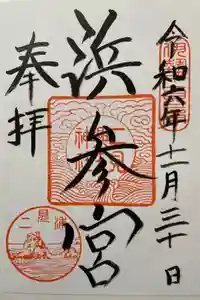 令和六年十一月三十日
浜参宮
奉拝
二見浦